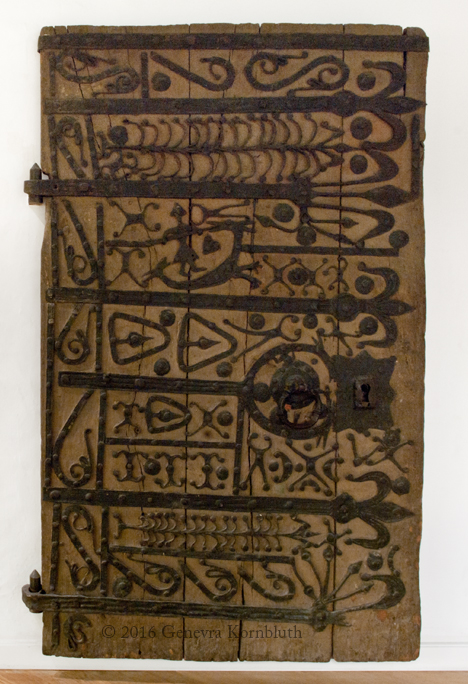 © 2016 Genevra Kornbluth